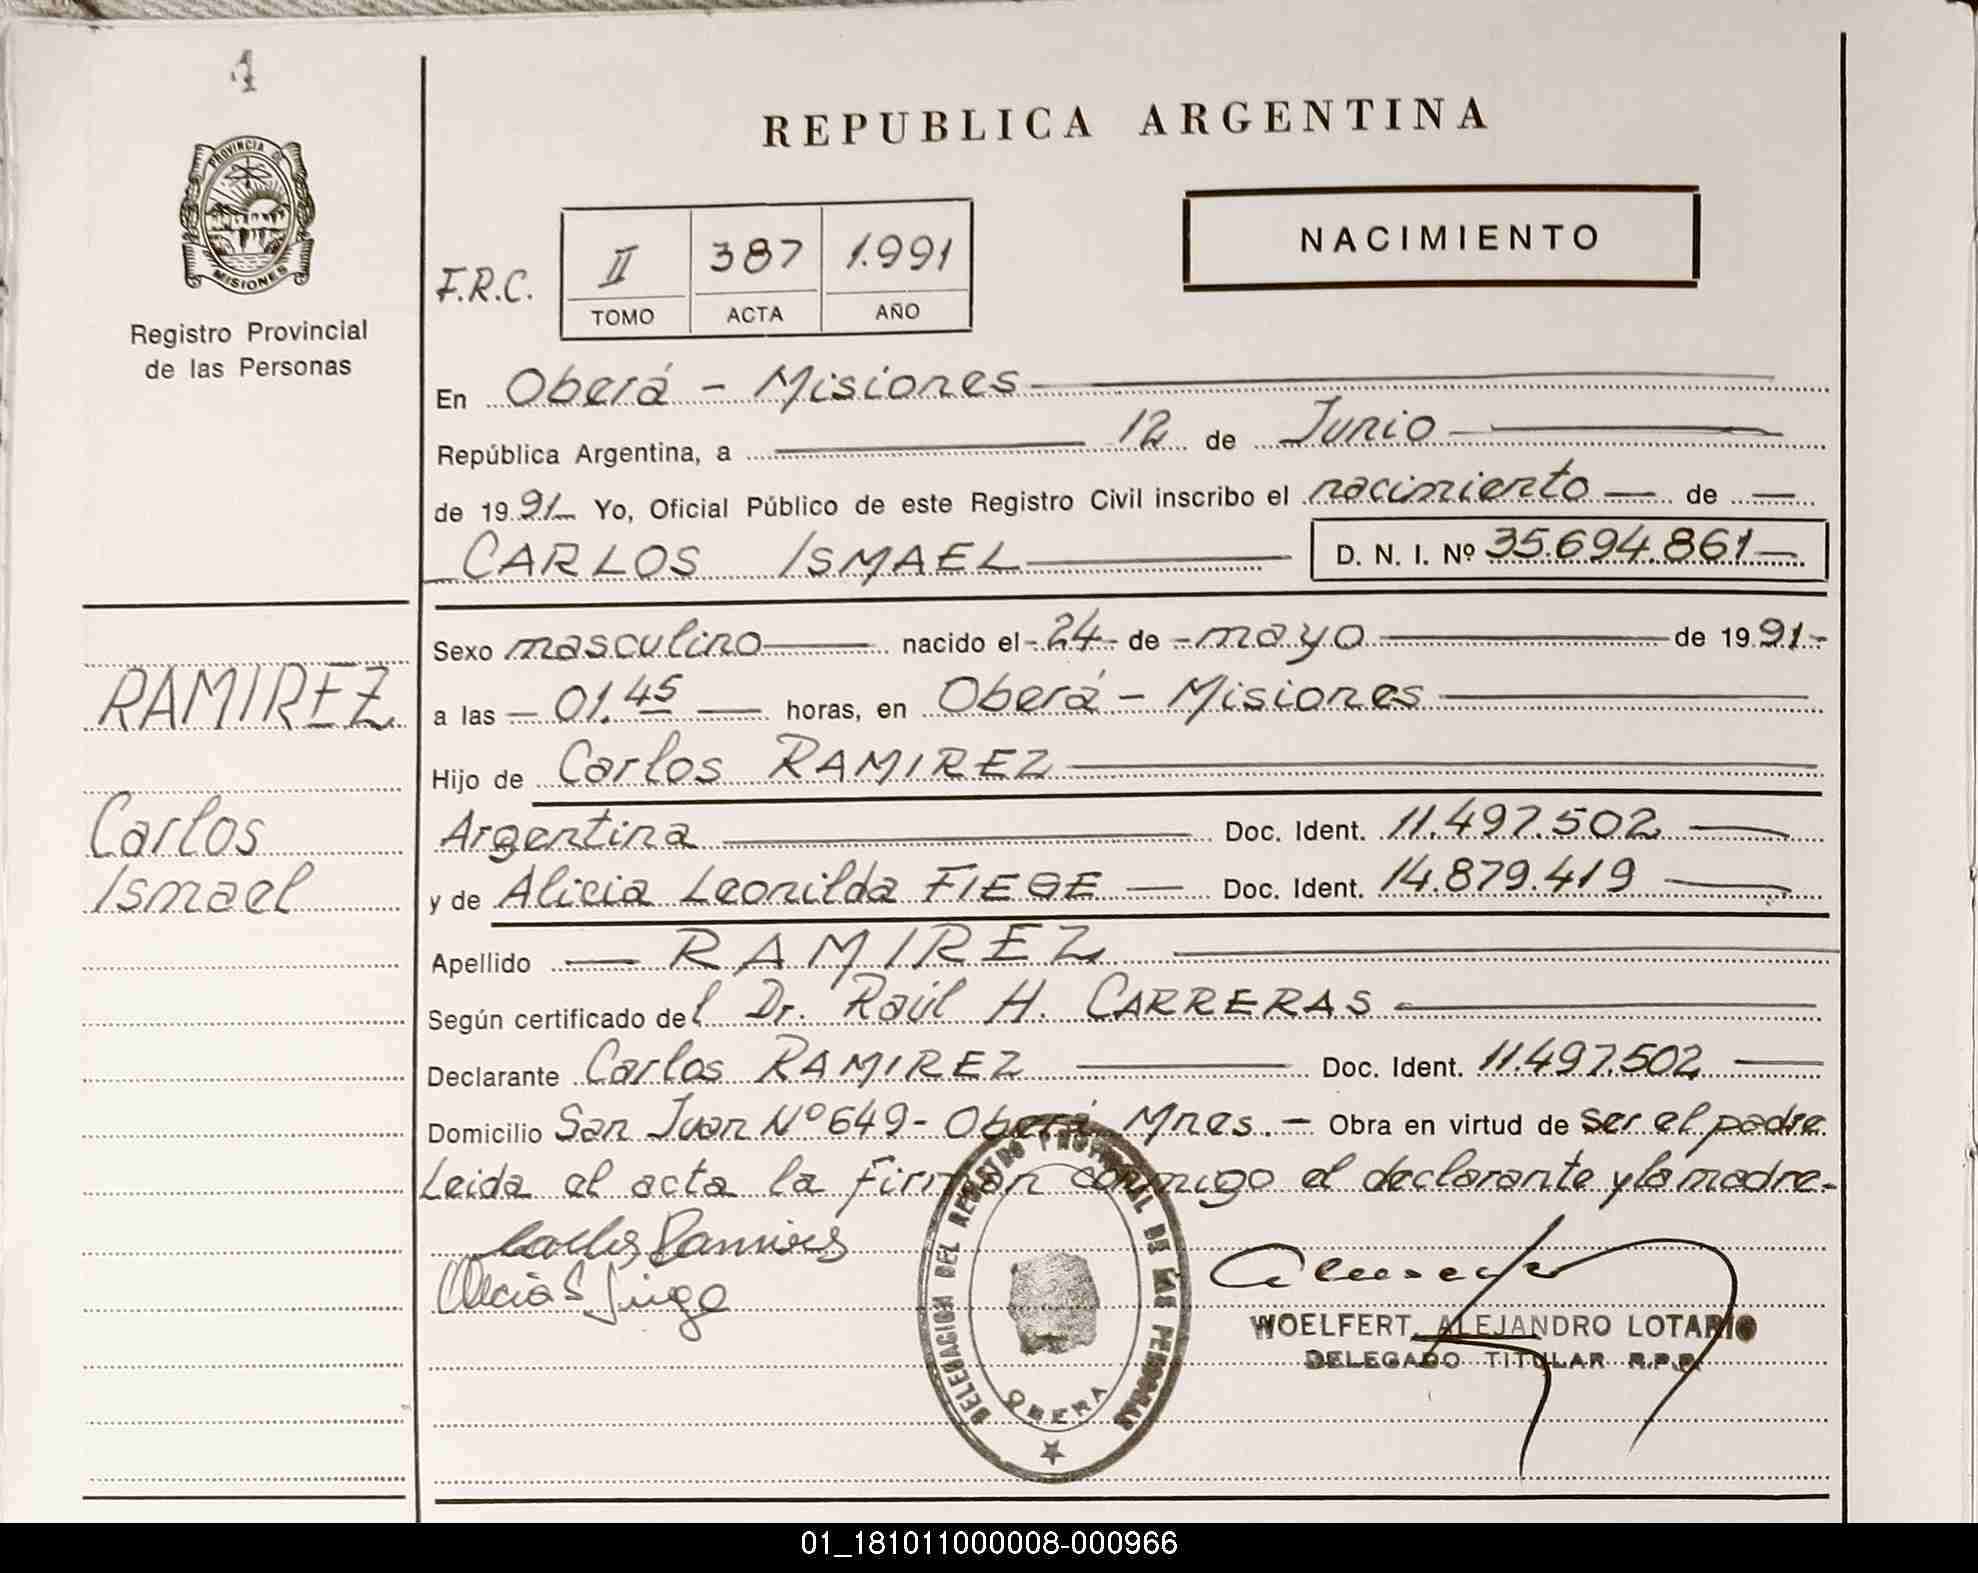 1
PROVINCIA DE
MISIONES
Registro Provincial
de las Personas
REPUBLICA ARGENTINA
F.R.C.
II 387 1.991
TOMO ACTA AÑO
NACIMIENTO
En Oberá - Misiones
República Argentina, a 12 de Junio
de 1991 Yo, Oficial Público de este Registro Civil inscribo el nacimiento de
CARLOS ISMAEL D. N. I. Nº 35.694.861
Sexo masculino nacido el 24 de mayo de 1991
RAMIREZ
a las 01.45 horas, en Oberá - Misiones
Hijo de Carlos RAMIREZ
Carlos
Ismael
Argentina Doc. Ident. 11.497.502
y de Alicia Leonilda FIEGE Doc. Ident. 14.879.419
Apellido RAMIREZ
Según certificado del Dr. Raúl H. CARRERAS
Declarante Carlos RAMIREZ Doc. Ident. 11.497.502
Domicilio San Juan Nº 649 - Oberá Mnes. - Obra en virtud de ser el padre
Leida el acta la firman conmigo el declarante y la madre.-
Carlos Ramires
DELEGACION DEL REGISTRO PROVINCIAL DE LAS PERSONAS
OBERA
WOELFERT, ALEJANDRO LOTARIO
DELEGADO TITULAR R.P.P.
01_181011000008-000966